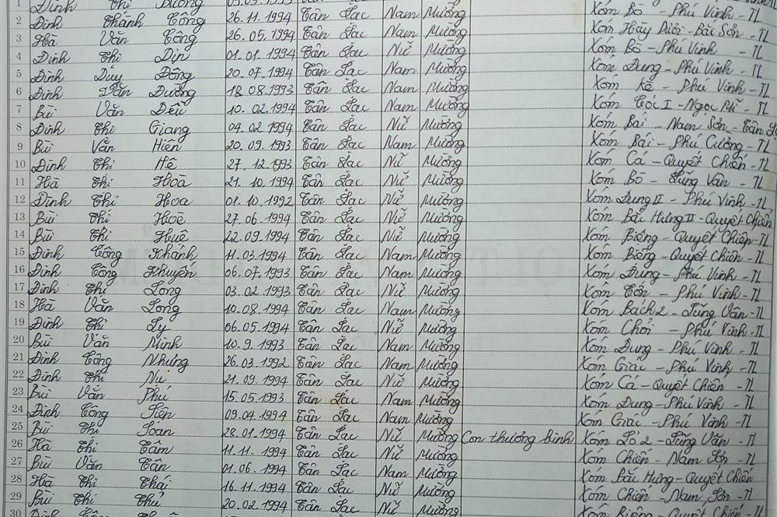 1 Đinh Thị Dương
2 Đinh Thành Công 26.11.1994 Tân Lạc Nam Mường Xóm Bò - Phú Vinh - TL
3 Hà Văn Công 26.05.1994 Tân Lạc Nam Mường Xóm Hày Dưới - Bắc Sơn - TL
4 Đinh Thị Dịn 01.01.1994 Tân Lạc Nữ Mường Xóm Bò - Phú Vinh - TL
5 Đinh Duy Đông 20.07.1994 Tân Lạc Nam Mường Xóm Dung - Phú Vinh - TL
6 Đinh Văn Dưỡng 18.08.1993 Tân Lạc Nam Mường Xóm Kè - Phú Vinh - TL
7 Bùi Văn Diễu 10.02.1994 Tân Lạc Nam Mường Xóm Cóc I - Ngọc Mỹ - TL
8 Đinh Thị Giang 09.02.1994 Tân Lạc Nữ Mường Xóm Bái - Nam Sơn - Tân
9 Bùi Văn Hiên 20.09.1993 Tân Lạc Nam Mường Xóm Bái - Phú Cường - TL
10 Đinh Thị Hé 27.12.1993 Tân Lạc Nữ Mường Xóm Cá - Quyết Chiến - TL
11 Hà Thị Hoà 21.10.1994 Tân Lạc Nữ Mường Xóm Bò - Lũng Vân - TL
12 Đinh Thị Hoa 01.10.1992 Tân Lạc Nữ Mường Xóm Dung II - Phú Vinh - TL
13 Bùi Thị Hoè 27.06.1994 Tân Lạc Nữ Mường Xóm Bắc Hưng II - Quyết Chiến
14 Bùi Thị Huê 22.09.1994 Tân Lạc Nữ Mường Xóm Biệng - Quyết Chiến - TL
15 Đinh Công Khánh 11.03.1994 Tân Lạc Nam Mường Xóm Biệng - Quyết Chiến - TL
16 Đinh Công Khuyên 06.07.1993 Tân Lạc Nam Mường Xóm Dung - Phú Vinh - TL
17 Đinh Thị Long 03.02.1993 Tân Lạc Nữ Mường Xóm Tôn - Phú Vinh - TL
18 Hà Văn Long 10.08.1994 Tân Lạc Nam Mường Xóm Bách 2 - Lũng Vân - TL
19 Đinh Thị Lý 06.05.1994 Tân Lạc Nữ Mường Xóm Chơi - Phú Vinh - TL
20 Bùi Văn Minh 10.9.1993 Tân Lạc Nam Mường Xóm Dung - Phú Vinh - TL
21 Đinh Công Nhưng 26.03.1992 Tân Lạc Nam Mường Xóm Giác - Phú Vinh - TL
22 Đinh Thị Nụ 21.09.1994 Tân Lạc Nữ Mường Xóm Cá - Quyết Chiến - TL
23 Bùi Văn Phú 15.05.1993 Tân Lạc Nam Mường Xóm Dung - Phú Vinh - TL
24 Đinh Công Tiệp 09.04.1994 Tân Lạc Nam Mường Xóm Giác - Phú Vinh - TL
25 Bùi Thị Soan 28.01.1994 Tân Lạc Nữ Mường Con thương binh Xóm Lò 2 - Lũng Vân - TL
26 Hà Thị Tâm 11.11.1994 Tân Lạc Nữ Mường Xóm Chiến - Nam Sơn - TL
27 Bùi Văn Tân 01.06.1994 Tân Lạc Nam Mường Xóm Bắc Hưng - Quyết Chiến
28 Hà Thị Thái 16.11.1994 Tân Lạc Nữ Mường Xóm Chiến - Nam Sơn - TL
29 Bùi Thị Thử 20.02.1994 Tân Lạc Nữ Mường Xóm Biệng - Quyết Chiến - TL
30 Đinh Công